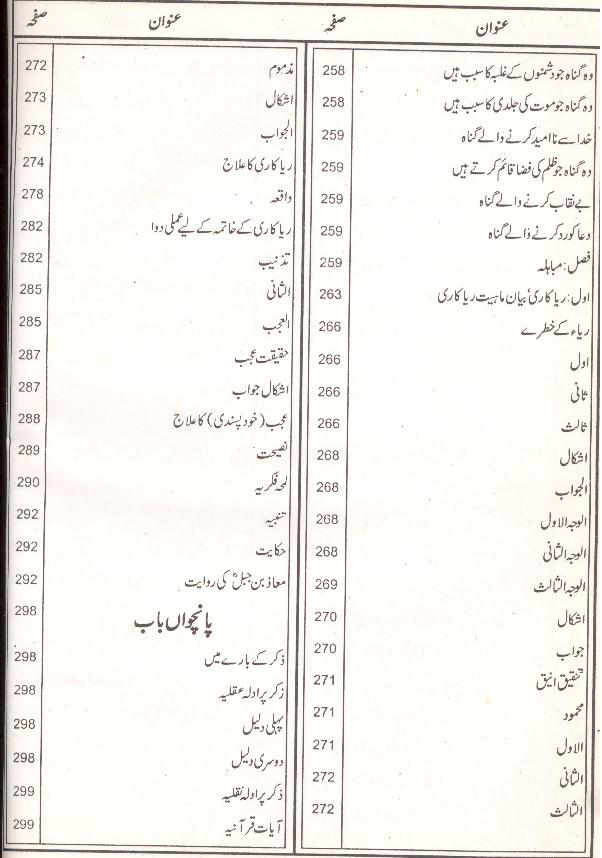 عنوان صفحہ
وہ گناہ جو دشمنوں کے غلبہ کا سبب ہیں 258
وہ گناہ جو موت کی جلدی کا سبب ہیں 258
خدا سے ناامید کرنے والے گناہ 259
وہ گناہ جو ظلم کی فضا قائم کرتے ہیں 259
بے نقاب کرنے والے گناہ 259
دعا کو رد کرنے والے گناہ 259
فصل: مباہلہ 259
اول: ریا کاری؛ بیان ماہیت ریا کاری 263
ریاء کے خطرے 266
اول 266
ثانی 266
ثالث 266
اشکال 268
الجواب 268
الوجہ الاول 268
الوجہ الثانی 268
الوجہ الثالث 269
اشکال 270
جواب 270
تحقیق انیق 271
محمود 271
الاول 271
الثانی 272
الثالث 272
عنوان صفحہ
مذموم 272
اشکال 273
الجواب 273
ریا کاری کا علاج 274
واقعہ 278
ریا کاری کے خاتمہ کے لیے عملی دوا 282
تذنیب 282
الثانی 285
العجب 285
حقیقت عجب 287
اشکال جواب 287
عجب (خود پسندی) کا علاج 288
نصیحت 289
لمحہ فکریہ 290
تنبیہ 292
حکایت 292
معاذ بن جبلؓ کی روایت 292
پانچواں باب 298
ذکر کے بارے میں 298
ذکر پر ادلہ عقلیہ 298
پہلی دلیل 298
دوسری دلیل 298
ذکر پر ادلہ نقلیہ 299
آیات قرآنیہ 299